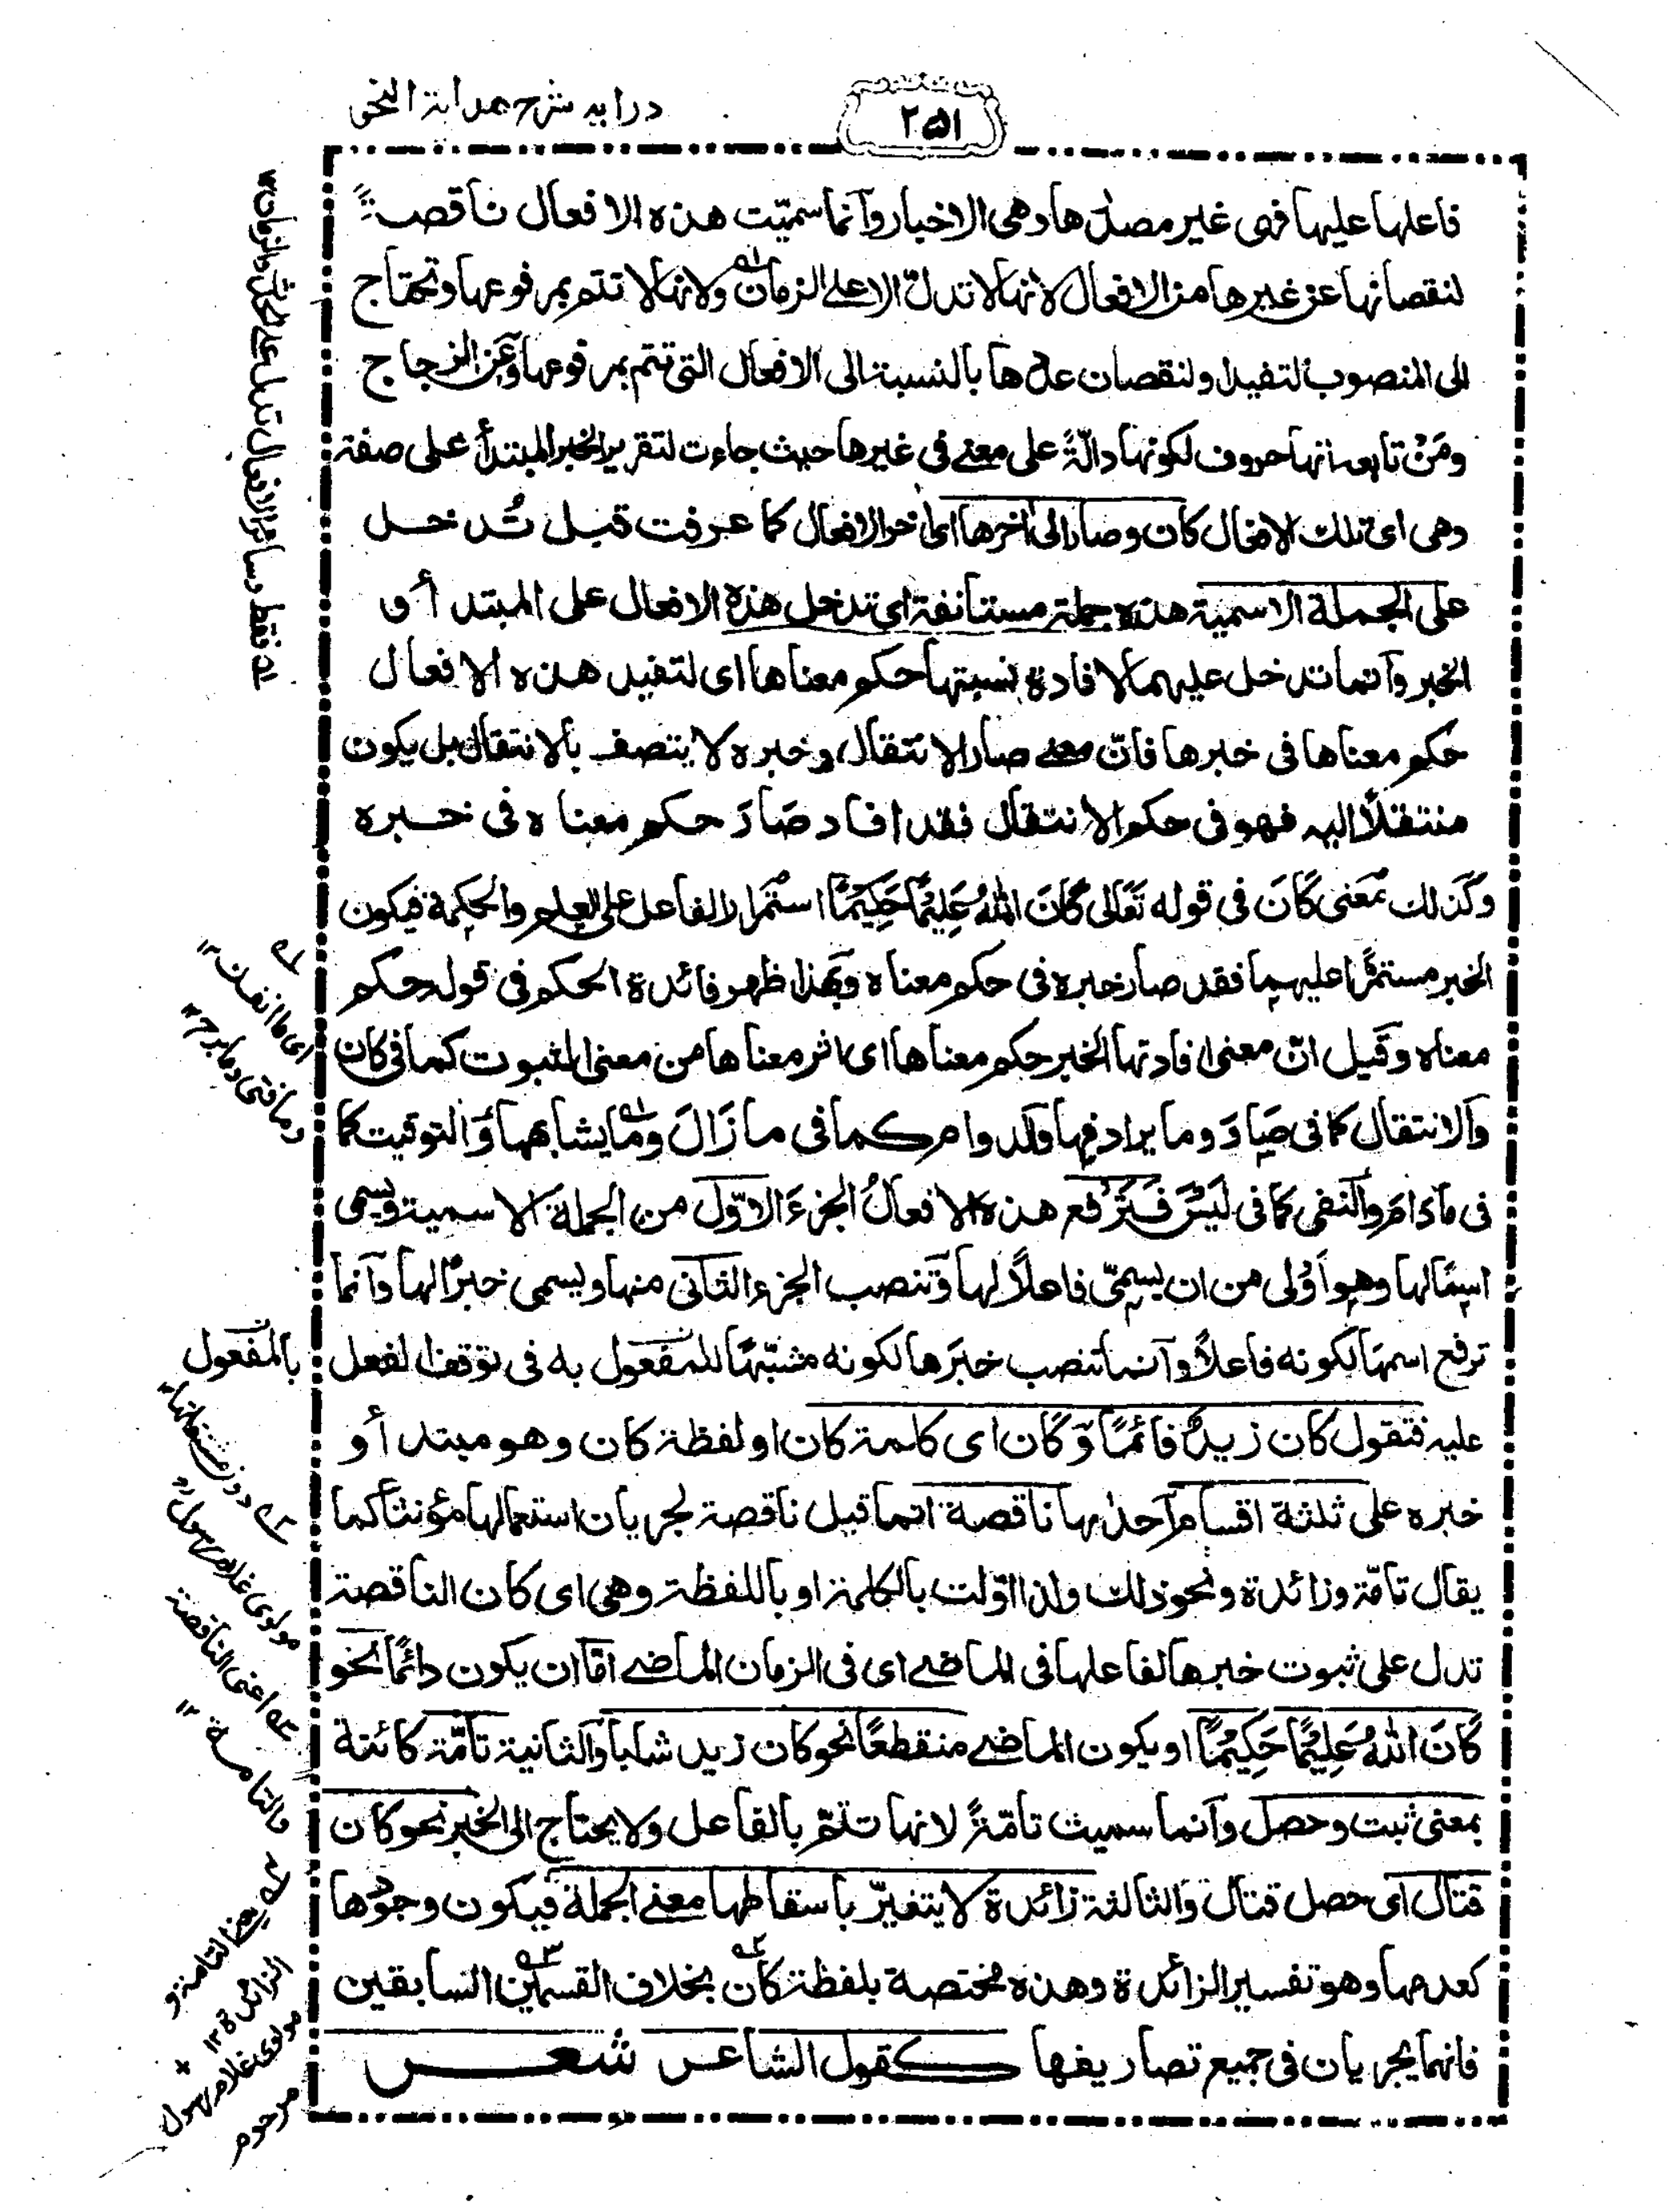 درايه شرح هداية النحو
٢٥١
فاعلها عليها فهى غير مصادرها وهى الاخبار وآنما سميّت هذه الافعال ناقصة
لنقصانها عن غيرها من الافعال لانها لا تدلّ الا على الزمان ولانها لا تتم بمرفوعها وتحتاج
الى المنصوب لتفيد ولنقصان عدها بالنسبة الى الافعال التى تتم بمرفوعها وعَن الزجاج
ومَنْ تابعه انها حروف لكونها دالّةً على معنے فى غيرها حيث جاءت لتقرير الخبر المبتدأ على صفة
وهى اى تلك الافعال كان وصار الى آخرها اى آخر الافعال كما عرفت قبل تُدخل
على الجملة الاسمية هذه جملة مستانفة اى تدخل هذه الافعال على المبتدأ و
الخبر وآنما تدخل عليهما لافادة نسبتها حكم معناها اى لتفيد هذه الافعال
حكم معناها فى خبرها فانّ معنے صار الانتقال وخبره لا يتصف بالانتقال بل يكون
منتقلاً اليه فهو فى حكم الانتقال فقد افاد صَارَ حكم معناه فى خبره
وكَذلك بمعنى كَانَ فى قوله تَعَالى كَانَ اللهُ عَلِيْمًا حَكِيْمًا استمرار الفاعل على العلم والحكمة فيكون
الخبر مستمرًّا عليهما فقد صار خبره فى حكم معناه وبَهذا ظهر فائدة الحكم فى قوله حكم
معناه وقَيل انّ معنى افادتها الخبر حكم معناها اى اثر معناها من معنى الثبوت كما فى كان
وآلانتقال كما فى صَارَ وما يرادفها وآلدوام كما فى مازَالَ وما يشابهها وَالتوقيت كما
فى مَادَامَ وآلنفى كما فى لَيْسَ فَتَرْفع هذه الافعالُ الجزءَ الاوّل من الجملة الاسمية ويسمى
اسمًا لها وهو اَوْلى من ان يسمّى فاعلاً لها وتنصب الجزء الثانى منها ويسمى خبرًا لها وآنما
ترفع اسمها لكونه فاعلاً وآنما تنصب خبرَها لكونه مشبّهًا للمفعول به فى توقف الفعل
عليه فتقول كان زيدٌ قائمًا وَكَان اى كلمة كان او لفظة كان وهو مبتدأ و
خبره على ثلثة اقسام آحدٰىها ناقصة انما قيل ناقصة لجريان استعمالها مؤنثاً كما
يقال تامّة وزائدة ونحو ذلك ولذا اوّلت بالكلمة او باللفظة وهى اى كان الناقصة
تدل على ثبوت خبرها لفاعلها فى الماضے اى فى الزمان الماضے امّا ان يكون دائمًا نحو
كَانَ اللهُ عَلِيْمًا حَكِيْمًا او يكون الماضے منقطعًا نحو كان زيد شابا وآلثانية تامّة كائنة
بمعنى ثبت وحصل وآنما سميت تامّةً لانها تتمّ بالفاعل ولا يحتاج الى الخبر نحو كان
قتال اى حصل قتال وَالثالثة زائدة لا يتغيّر باسقاطها معنے الجملة فيكون وجودها
كعدمها وهو تفسير الزائدة وهذه مختصة بلفظة كان بخلاف القسمين السابقين
فانهما يجريان فى جميع تصاريفها كقول الشاعر شعر
فقط وسائر الافعال تدل على الحدث والزمان ١٢
اى ما انفك
وما فتى وما برح ١٢
بالمفعول
دون مشتقاتها
مولوى غلام رسول
اعنى الناقصة
والتامة ١٢
التامة و
الزائدة ١٢
مولوى غلام رسول
مرحوم